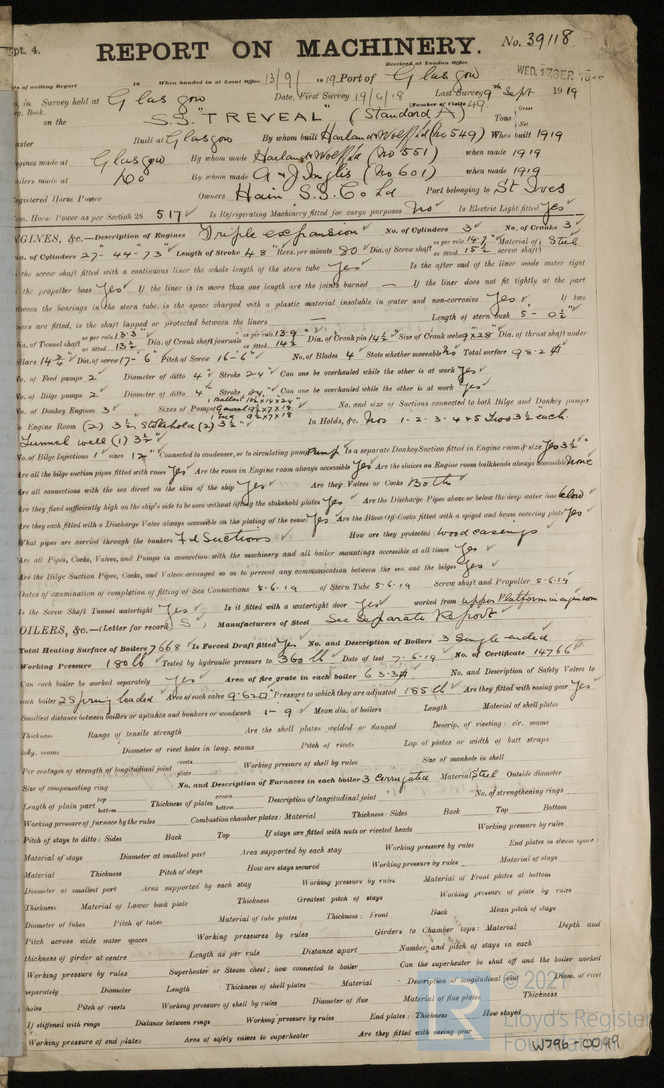 pt. 4.
REPORT ON MACHINERY. No. 39118
Received at London Office WED. 17 SEP. 19
of writing Report 19 When handed in at Local Office 13/9/ 1919. Port of Glasgow
in Survey held at Glasgow Date, First Survey 19/6/18 Last Survey 9th Sept 1919
Book. (Number of Visits 49.
on the S.S. "TREVEAL" (Standard A) Tons { Gross Net
Built at Glasgow By whom built Harland & Wolff Ld (No 549) When built 1919
ngines made at Glasgow By whom made Harland & Wolff Ld (No 551) when made 1919
ilers made at Do By whom made A & J Inglis (No 601) when made 1919
egistered Horse Power Owners Hain S.S. Co Ld Port belonging to St Ives
om. Horse Power as per Section 28 517 Is Refrigerating Machinery fitted for cargo purposes No Is Electric Light fitted Yes
NGINES, &c.—Description of Engines Triple expansion No. of Cylinders 3 No. of Cranks 3
ia. of Cylinders 27"-44"-73" Length of Stroke 48" Revs. per minute 80 Dia. of Screw shaft as per rule 14.7" as fitted 15½" Material of screw shaft Steel
the screw shaft fitted with a continuous liner the whole length of the stern tube Yes Is the after end of the liner made water tight
the propeller boss Yes If the liner is in more than one length are the joints burned — If the liner does not fit tightly at the part
tween the bearings in the stern tube, is the space charged with a plastic material insoluble in water and non-corrosive Yes If two
ners are fitted, is the shaft lapped or protected between the liners — Length of stern bush 5'-0½"
Dia. of Tunnel shaft as per rule 13.3" as fitted 13½ Dia. of Crank shaft journals as per rule 13.9" as fitted 14½ Dia. of Crank pin 14½" Size of Crank webs 9"x28" Dia. of thrust shaft under
ollars 14¾" Dia. of screw 17'-6" Pitch of Screw 16'-6" No. of Blades 4 State whether moveable No Total surface 98.2
No. of Feed pumps 2 Diameter of ditto 4" Stroke 24" Can one be overhauled while the other is at work Yes
No. of Bilge pumps 2 Diameter of ditto 4" Stroke 24" Can one be overhauled while the other is at work Yes
No. of Donkey Engines 3 Sizes of Pumps No. and size of Suctions connected to both Bilge and Donkey pumps
In Engine Room (2) 3½, Stokehold (2) 3½" In Holds, &c. Nos 1-2-3-4 & 5 Two 3½" each.
Tunnel well (1) 3½"
No. of Bilge Injections 1 sizes 12" Connected to condenser, or to circulating pump Pump Is a separate Donkey Suction fitted in Engine room & size Yes 3½"
Are all the bilge suction pipes fitted with roses Yes Are the roses in Engine room always accessible Yes Are the sluices on Engine room bulkheads always accessible None
Are all connections with the sea direct on the skin of the ship Yes Are they Valves or Cocks Both
Are they fixed sufficiently high on the ship's side to be seen without lifting the stokehold plates Yes Are the Discharge Pipes above or below the deep water line below
Are they each fitted with a Discharge Valve always accessible on the plating of the vessel Yes Are the Blow Off Cocks fitted with a spigot and brass covering plate Yes
What pipes are carried through the bunkers F'd Suctions How are they protected Wood casings
Are all Pipes, Cocks, Valves, and Pumps in connection with the machinery and all boiler mountings accessible at all times Yes
Are the Bilge Suction Pipes, Cocks, and Valves arranged so as to prevent any communication between the sea and the bilges Yes
Dates of examination of completion of fitting of Sea Connections 5-6-19 of Stern Tube 5-6-19 Screw shaft and Propeller 5-6-19
Is the Screw Shaft Tunnel watertight Yes Is it fitted with a watertight door Yes worked from upper Platform in engine room
OILERS, &c.—(Letter for record S) Manufacturers of Steel See Separate Report
Total Heating Surface of Boilers 7668 Is Forced Draft fitted Yes No. and Description of Boilers 3 Single ended
Working Pressure 180 lb Tested by hydraulic pressure to 360 lb Date of test 7-6-19 No. of Certificate 14766
Can each boiler be worked separately Yes Area of fire grate in each boiler 63.3 No. and Description of Safety Valves to
each boiler 2 Spring loaded Area of each valve 9.62 Pressure to which they are adjusted 185 lb Are they fitted with easing gear Yes
Smallest distance between boilers or uptakes and bunkers or woodwork 1'-9" Mean dia. of boilers Length Material of shell plates
Thickness Range of tensile strength Are the shell plates welded or flanged Descrip. of riveting : cir. seams
long. seams Diameter of rivet holes in long. seams Pitch of rivets Lap of plates or width of butt straps
Per centages of strength of longitudinal joint rivets plate Working pressure of shell by rules Size of manhole in shell
Size of compensating ring No. and Description of Furnaces in each boiler 3 Corrugated Material Steel Outside diameter
Length of plain part top bottom Thickness of plates crown bottom Description of longitudinal joint No. of strengthening rings
Working pressure of furnace by the rules Combustion chamber plates : Material Thickness : Sides Back Top Bottom
Pitch of stays to ditto : Sides Back Top If stays are fitted with nuts or riveted heads Working pressure by rules
Material of stays Diameter at smallest part Area supported by each stay Working pressure by rules End plates in steam space :
Material Thickness Pitch of stays How are stays secured Working pressure by rules Material of stays
Diameter at smallest part Area supported by each stay Working pressure by rules Material of Front plates at bottom
Thickness Material of Lower back plate Thickness Greatest pitch of stays Working pressure of plate by rules
Diameter of tubes Pitch of tubes Material of tube plates Thickness : Front Back Mean pitch of stays
Pitch across wide water spaces Working pressures by rules Girders to Chamber tops : Material Depth and
thickness of girder at centre Length as per rule Distance apart Number and pitch of stays in each
Working pressure by rules Superheater or Steam chest ; how connected to boiler Can the superheater be shut off and the boiler worked
separately Diameter Length Thickness of shell plates Material Description of longitudinal joint Diam. of rivet
holes Pitch of rivets Working pressure of shell by rules Diameter of flue Material of flue plates Thickness
If stiffened with rings Distance between rings Working pressure by rules End plates : Thickness How stayed
Working pressure of end plates Area of safety valves to superheater Are they fitted with easing gear
© 2021
Lloyd's Register
Foundation
W796-0099